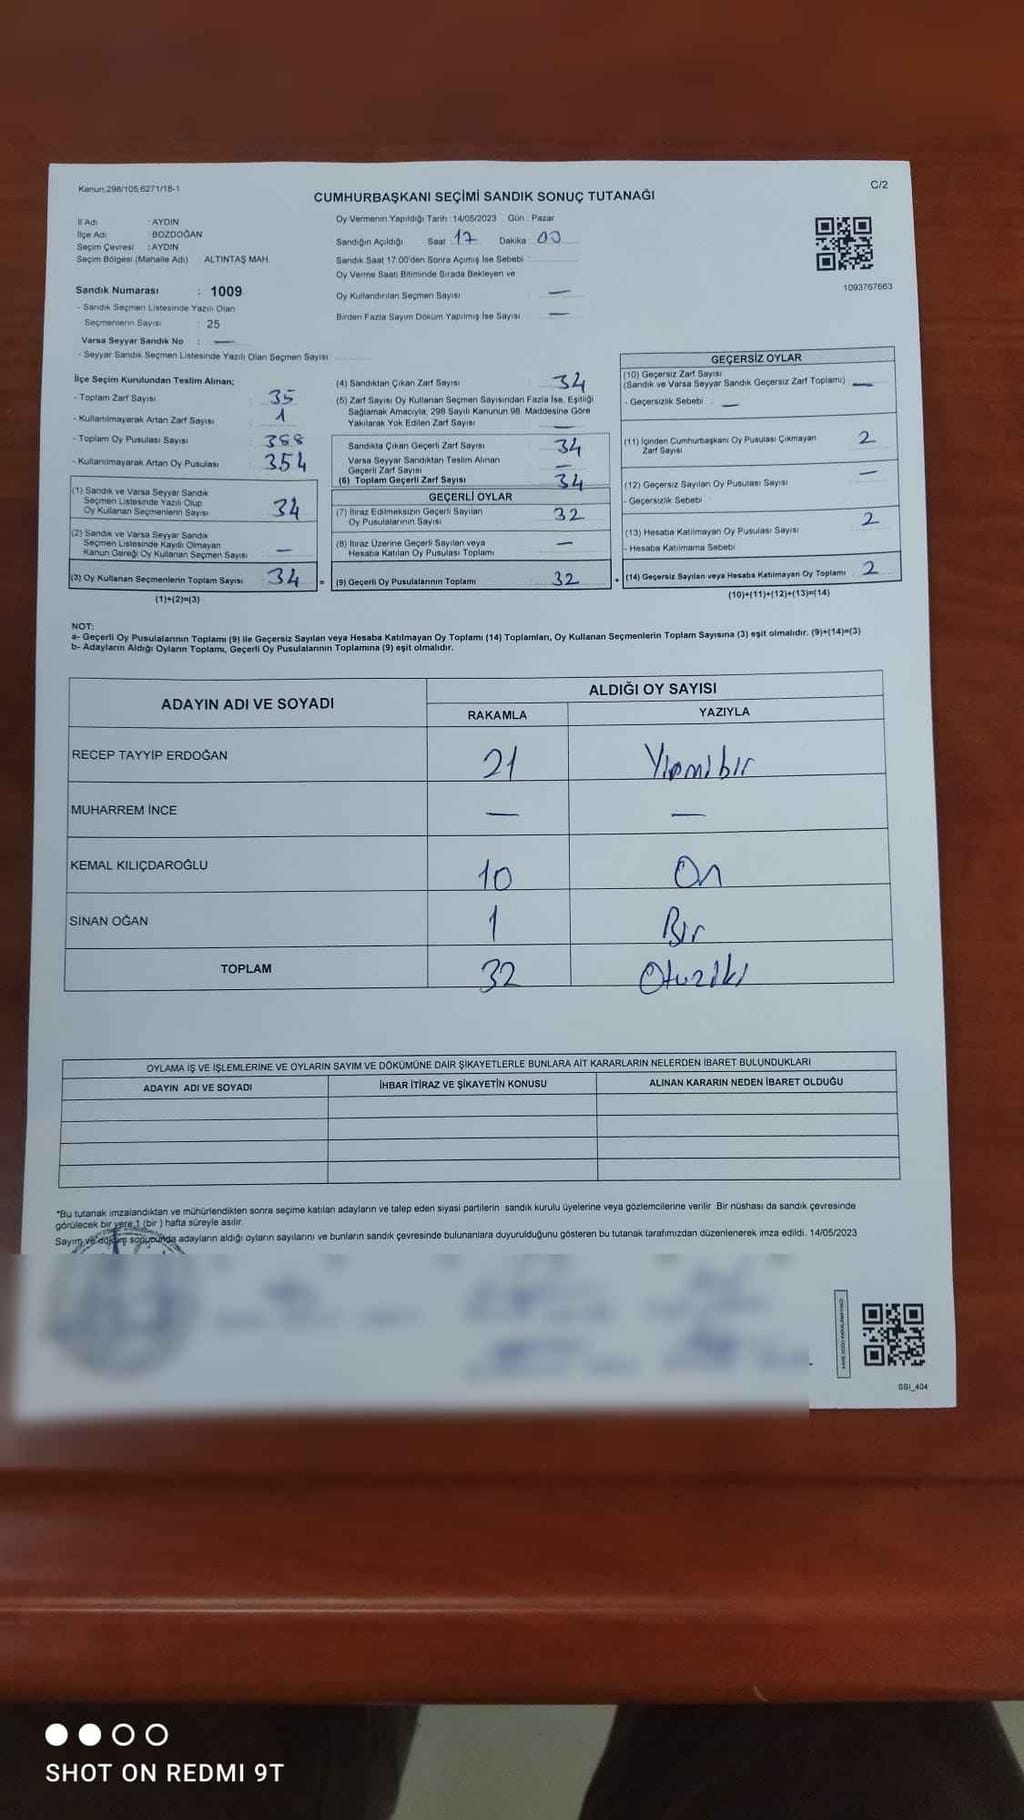 Kanun.298/105,6271/18-1
C/2
CUMHURBAŞKANI SEÇİMİ SANDIK SONUÇ TUTANAĞI
İl Adı : AYDIN
İlçe Adı : BOZDOĞAN
Seçim Çevresi : AYDIN
Seçim Bölgesi (Mahalle Adı) : ALTINTAŞ MAH
Sandık Numarası : 1009
- Sandık Seçmen Listesinde Yazılı Olan
Seçmenlerin Sayısı : 25
Varsa Seyyar Sandık No : —
- Seyyar Sandık Seçmen Listesinde Yazılı Olan Seçmen Sayısı
Oy Vermenin Yapıldığı Tarih : 14/05/2023 Gün : Pazar
Sandığın Açıldığı Saat : 17 Dakika : 00
Sandık Saat 17.00'den Sonra Açımış İse Sebebi
Oy Verme Saati Bitiminde Sırada Bekleyen ve
Oy Kullandırılan Seçmen Sayısı —
Birden Fazla Sayım Döküm Yapılmış İse Sayısı —
1093767663
İlçe Seçim Kurulundan Teslim Alınan;
- Toplam Zarf Sayısı 35
- Kullanılmayarak Artan Zarf Sayısı 1
- Toplam Oy Pusulası Sayısı 388
- Kullanılmayarak Artan Oy Pusulası 354
(1) Sandık ve Varsa Seyyar Sandık
Seçmen Listesinde Yazılı Olup
Oy Kullanan Seçmenlerin Sayısı 34
(2) Sandık ve Varsa Seyyar Sandık
Seçmen Listesinde Kayıtlı Olmayan
Kanun Gereği Oy Kullanan Seçmen Sayısı —
(3) Oy Kullanan Seçmenlerin Toplam Sayısı 34 =
(1)+(2)=(3)
(4) Sandıktan Çıkan Zarf Sayısı 34
(5) Zarf Sayısı Oy Kullanan Seçmen Sayısından Fazla İse, Eşitliği
Sağlamak Amacıyla, 298 Sayılı Kanunun 98. Maddesine Göre
Yakılarak Yok Edilen Zarf Sayısı —
Sandıkta Çıkan Geçerli Zarf Sayısı 34
Varsa Seyyar Sandıktan Teslim Alınan
Geçerli Zarf Sayısı —
(6) Toplam Geçerli Zarf Sayısı 34
GEÇERLİ OYLAR
(7) İtiraz Edilmeksizin Geçerli Sayılan
Oy Pusulalarının Sayısı 32
(8) İtiraz Üzerine Geçerli Sayılan veya
Hesaba Katılan Oy Pusulası Toplamı —
(9) Geçerli Oy Pusulalarının Toplamı 32 +
GEÇERSİZ OYLAR
(10) Geçersiz Zarf Sayısı
(Sandık ve Varsa Seyyar Sandık Geçersiz Zarf Toplamı) —
- Geçersizlik Sebebi —
(11) İçinden Cumhurbaşkanı Oy Pusulası Çıkmayan
Zarf Sayısı 2
(12) Geçersiz Sayılan Oy Pusulası Sayısı —
- Geçersizlik Sebebi
(13) Hesaba Katılmayan Oy Pusulası Sayısı 2
- Hesaba Katılmama Sebebi
(14) Geçersiz Sayılan veya Hesaba Katılmayan Oy Toplamı 2
(10)+(11)+(12)+(13)=(14)
NOT:
a- Geçerli Oy Pusulalarının Toplamı (9) ile Geçersiz Sayılan veya Hesaba Katılmayan Oy Toplamı (14) Toplamları, Oy Kullanan Seçmenlerin Toplam Sayısına (3) eşit olmalıdır. (9)+(14)=(3)
b- Adayların Aldığı Oyların Toplamı, Geçerli Oy Pusulalarının Toplamına (9) eşit olmalıdır.
ADAYIN ADI VE SOYADI ALDIĞI OY SAYISI
RAKAMLA YAZIYLA
RECEP TAYYİP ERDOĞAN 21 Yirmibir
MUHARREM İNCE — —
KEMAL KILIÇDAROĞLU 10 On
SİNAN OĞAN 1 Bir
TOPLAM 32 Otuziki
OYLAMA İŞ VE İŞLEMLERİNE VE OYLARIN SAYIM VE DÖKÜMÜNE DAİR ŞİKAYETLERLE BUNLARA AİT KARARLARIN NELERDEN İBARET BULUNDUKLARI
ADAYIN ADI VE SOYADI İHBAR İTİRAZ VE ŞİKAYETİN KONUSU ALINAN KARARIN NEDEN İBARET OLDUĞU
*Bu tutanak imzalandıktan ve mühürlendikten sonra seçime katılan adayların ve talep eden siyasi partilerin sandık kurulu üyelerine veya gözlemcilerine verilir. Bir nüshası da sandık çevresinde
görülecek bir yere 1 (bir ) hafta süreyle asılır.
Sayım ve döküm sonucunda adayların aldığı oyların sayılarını ve bunların sandık çevresinde bulunanlara duyurulduğunu gösteren bu tutanak tarafımızdan düzenlenerek imza edildi. 14/05/2023
SSI_404
SHOT ON REDMI 9T